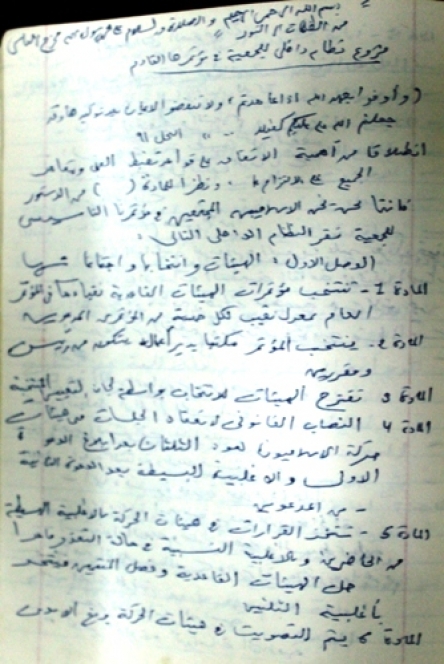 بسم الله الرحمن الرحيم والصلاة والسلام على
من الظلمات إلى النور
مشروع نظام داخلي للجمعية في مؤتمرها القادم
(وأوفوا بعهد الله إذا عاهدتم، ولا تنقضوا الأيمان بعد توكيدها وقد
جعلتم الله عليكم كفيلا .. ،، النحل 91
انطلاقا من أهمية الاتفاق على قواعد تضبط العمل ويتعاهد
الجميع على الالتزام بها. ونظرا للمادة ( ) من الدستور
فإننا نحن الاسلاميين المجتمعين في مؤتمرنا التأسيسي
للجمعية نقر النظام الداخلي التالي:
الفصل الأول: الهيئات وانتخابها واجتماعاتها
المادة 1 - تنتخب مؤتمرات الهيئات القاعدية نقباءها في المؤتمر
العام بمعدل نقيب لكل خمسة من
المادة 2 - ينتخب المؤتمر مكتبا يدير أعماله يتكون من رئيس
ومقررين
المادة 3 تقترح الهيئات للانتخاب بواسطة لجان
المادة 4 النصاب القانوني لانعقاد الجلسات في هيئات
حركة الاسلاميين هو الثلثان بعد الدعوة
الأولى والأغلبية البسيطة بعد الدعوة الثانية
- من
المادة 5 - تتخذ القرارات في هيئات الحركة بالأغلبية البسيطة
من الحاضرين وبالأغلبية النسبية في حالة التعذر ماعدا
حل الهيئات القاعدية وفصل
بأغلبية الثلثين
المادة 6 يتم التصويت في هيئات الحركة برفع الأيدي